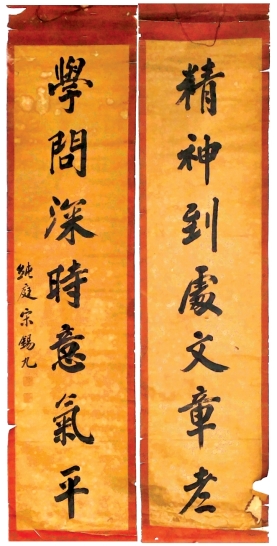 精神到處文章老
學問深時意氣平
純庭宋錫九